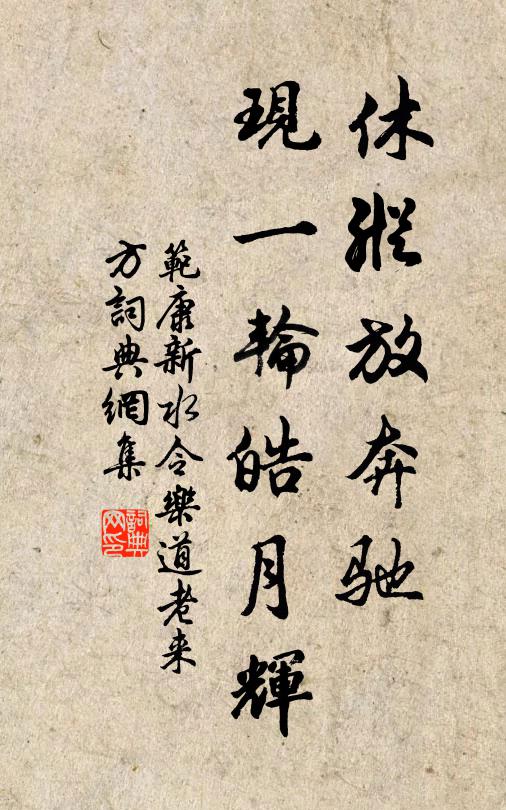 休縱放奔馳
現一輪皓月輝
範康新水令樂道老来
方詞典網集
詞典网印